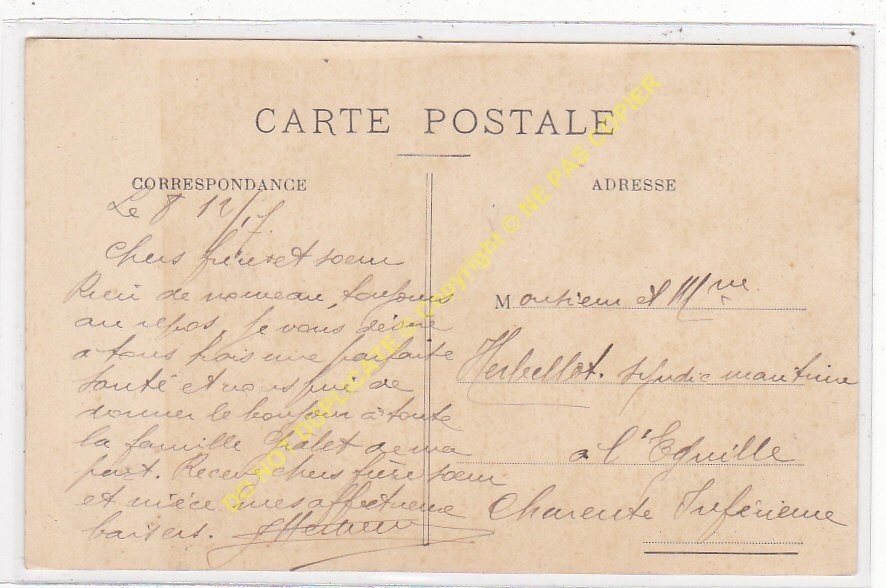 CARTE POSTALE
CORRESPONDANCE
Le 8 12/17.
chers frère et sœur
Rien de nouveau, toujours
au repos, je vous désire
a tous trois une parfaite
santé et vous prie de
donner le bonjour à toute
la famille Chalet de ma
part. Recevez chers frère sœur
et nièce mes affectueux
baisers.
ADRESSE
Monsieur et Mme
Herbellot. syndic maritime
a l'Eguille
Charente Inférieure
DO NOT DUPLICATE © Copyright © NE PAS COPIER